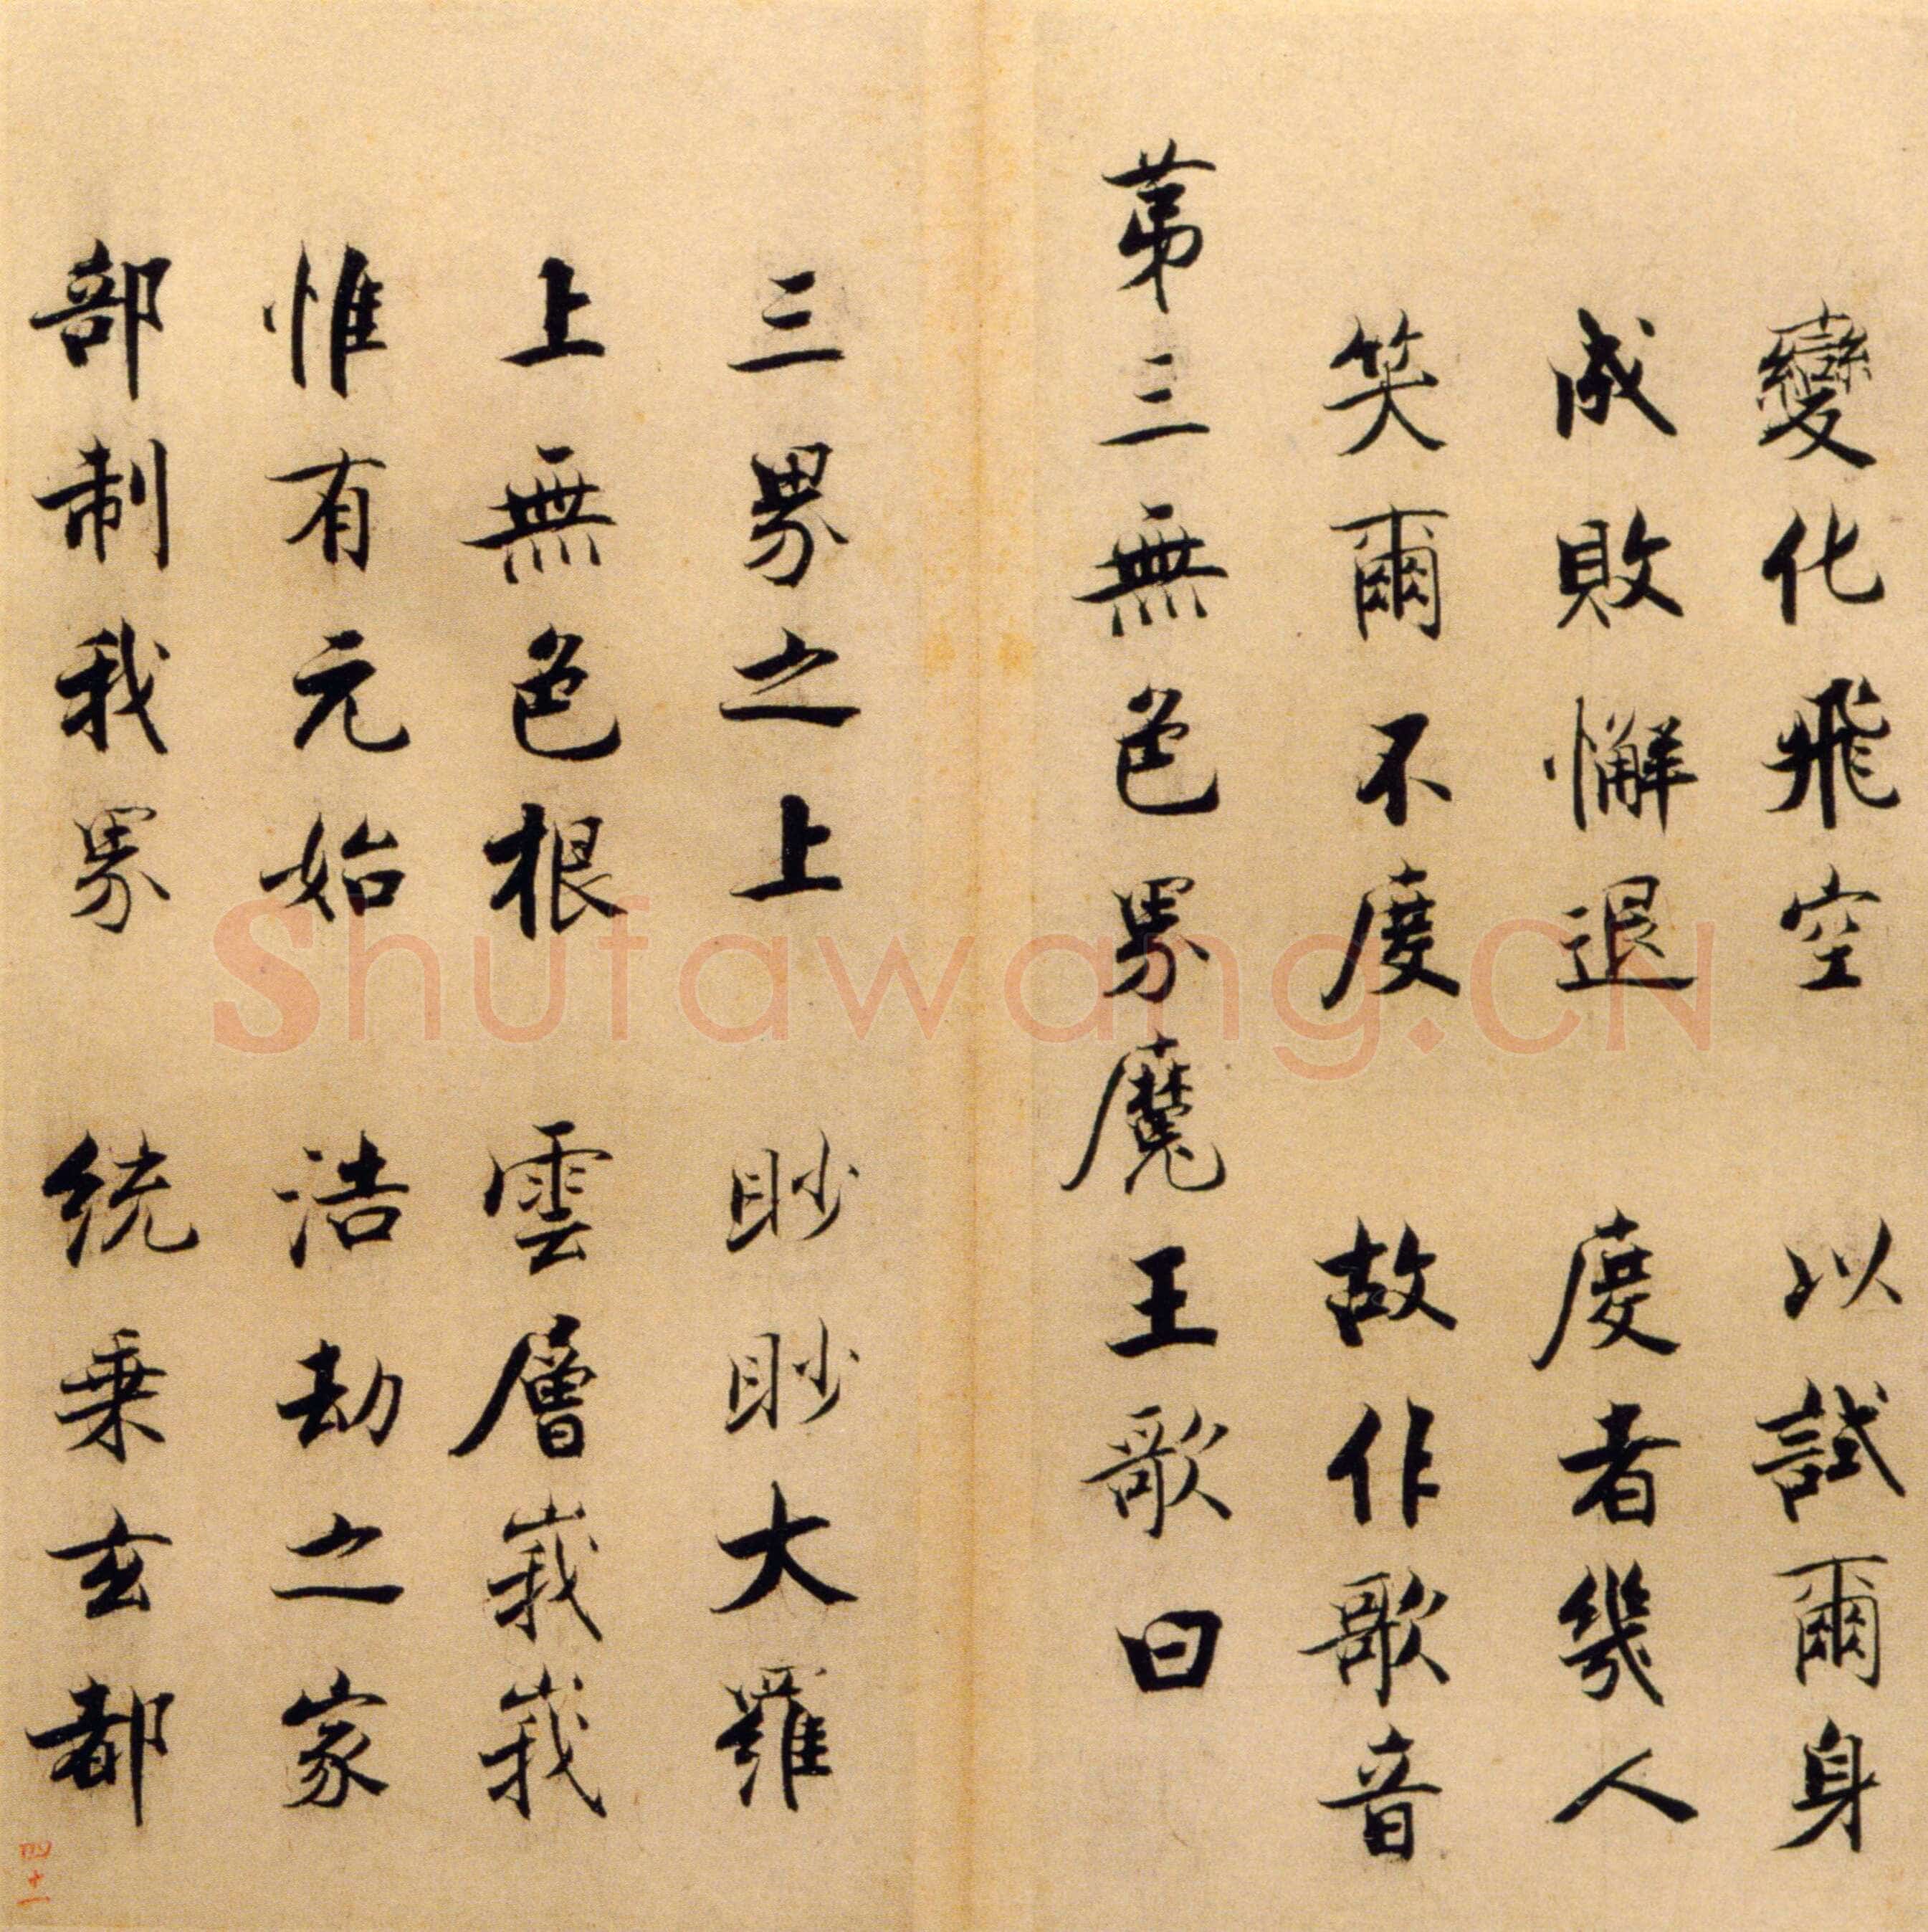 變化飛空　以試爾身
成敗懈退　度者幾人
笑爾不度　故作歌音
第三無色界魔王歌曰
三界之上　眇眇大羅
上無色根　雲層峩峩
惟有元始　浩劫之家
部制我界　統乘玄都
四十一
Shufawang.CN